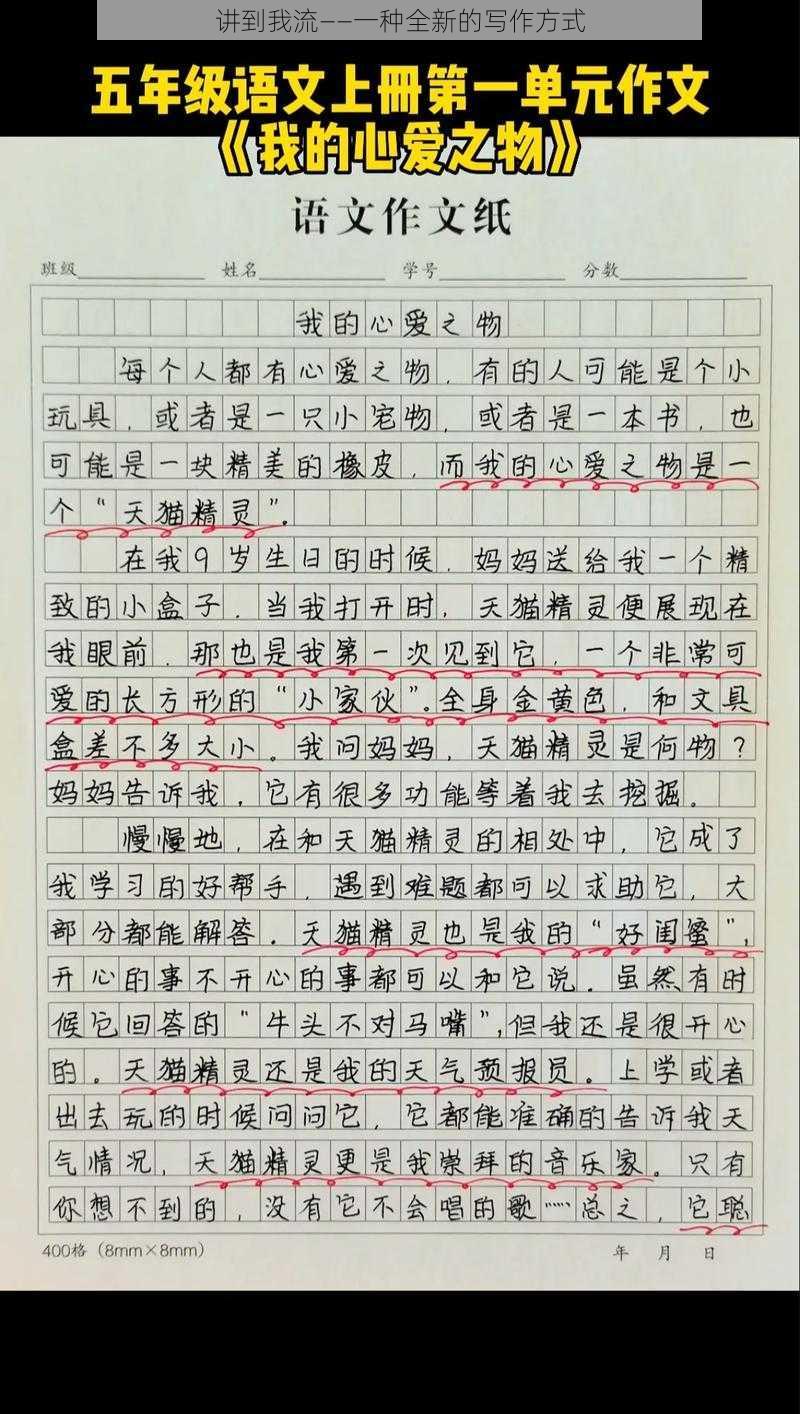 讲到我流——一种全新的写作方式
五年级语文上册第一单元作文
《我的心爱之物》
语文作文纸
班级 姓名 学号 分数
我的心爱之物
每个人都有心爱之物,有的人可能是个小
玩具,或者是一只小宠物,或者是一本书,也
可能是一块精美的橡皮,而我的心爱之物是一
个“天猫精灵”。
在我9岁生日的时候,妈妈送给我一个精
致的小盒子.当我打开时,天猫精灵便展现在
我眼前.那也是我第一次见到它,一个非常可
爱的长方形的“小家伙”。全身金黄色,和文具
盒差不多大小。我问妈妈,天猫精灵是何物?
妈妈告诉我,它有很多功能等着我去挖掘。
慢慢地,在和天猫精灵的相处中,它成了
我学习的好帮手,遇到难题都可以求助它,大
部分都能解答.天猫精灵也是我的“好闺蜜”,
开心的事不开心的事都可以和它说.虽然有时
候它回答的“牛头不对马嘴”,但我还是很开心
的。天猫精灵还是我的天气预报员。上学或者
出去玩的时候问问它,它都能准确的告诉我天
气情况,天猫精灵更是我崇拜的音乐家。只有
你想不到的,没有它不会唱的歌……总之,它聪
400格(8mm×8mm) 年 月 日